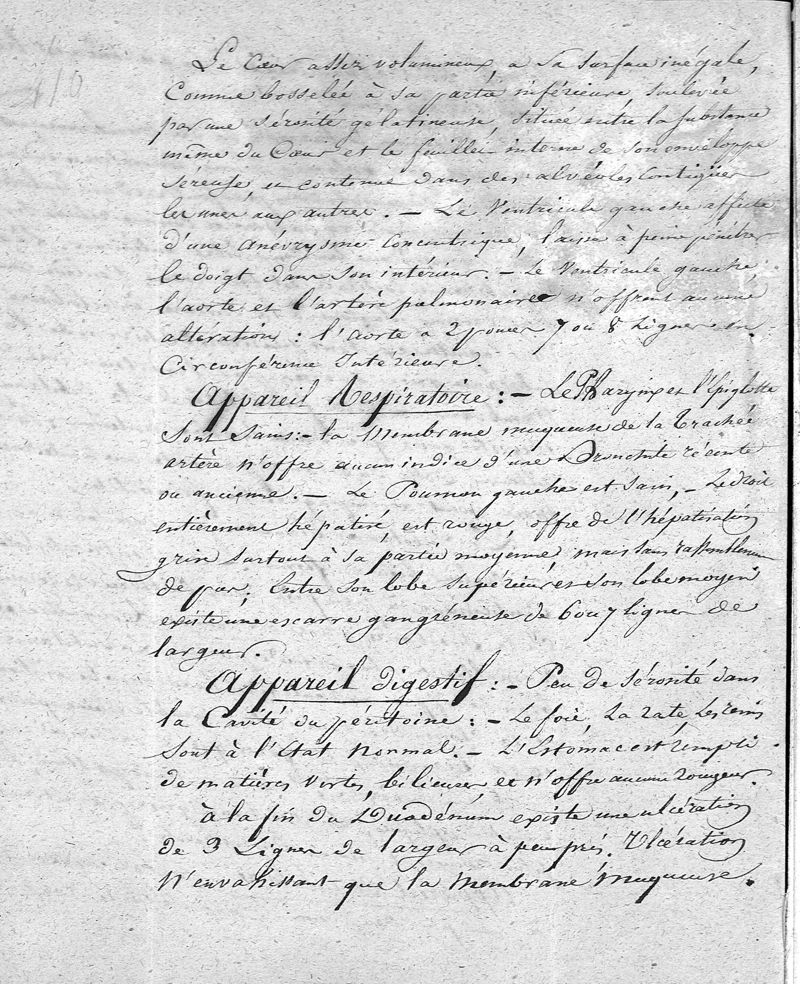 110
Le Cœur assez volumineux, a sa surface inégale,
Comme bosseleé à sa partie inférieure, soulevée
par une sérosité gélatineuse, située entre la substance
même du Cœur et le feuillet interne de son enveloppe
séreuse, et contenue dans des alvéoles contigües
les unes aux autres. — Le Ventricule gauche affecté
d'une anévrysme Concentrique, laisse à peine pénétrer
le doigt dans son intérieur. — Le Ventricule gauche
l'aorte et l'artère pulmonaire n'offrent aucune
altération : l'aorte a 2 pouces 7 ou 8 lignes en
Circonférence Intérieure.
Appareil Respiratoire : — Le Pharynx et l'Epiglotte
sont sains : — la Membrane muqueuse de la trachée
artère n'offre aucun indice d'une Bronchite récente
ou ancienne. — Le Poumon gauche est sain, — Le droit
entièrement hépatisé est rouge, offre de l'hépatisation
grise surtout à sa partie moyenne mais sans rassemblement
de pus. Entre son lobe supérieur et son lobe moyen
existe une escarre gangréneuse de 6 ou 7 lignes de
largeur.
Appareil digestif : — Peu de sérosité dans
la Cavité du péritoine : — Le foie, la rate, les reins
sont à l'Etat Normal. — L'Estomac est rempli
de matières vertes, bilieuses, et n'offre aucune rougeur.
à la fin du Duodénum existe une ulcération
de 3 Lignes de largeur à peu près. Ulcération
N'envahissant que la Membrane muqueuse.